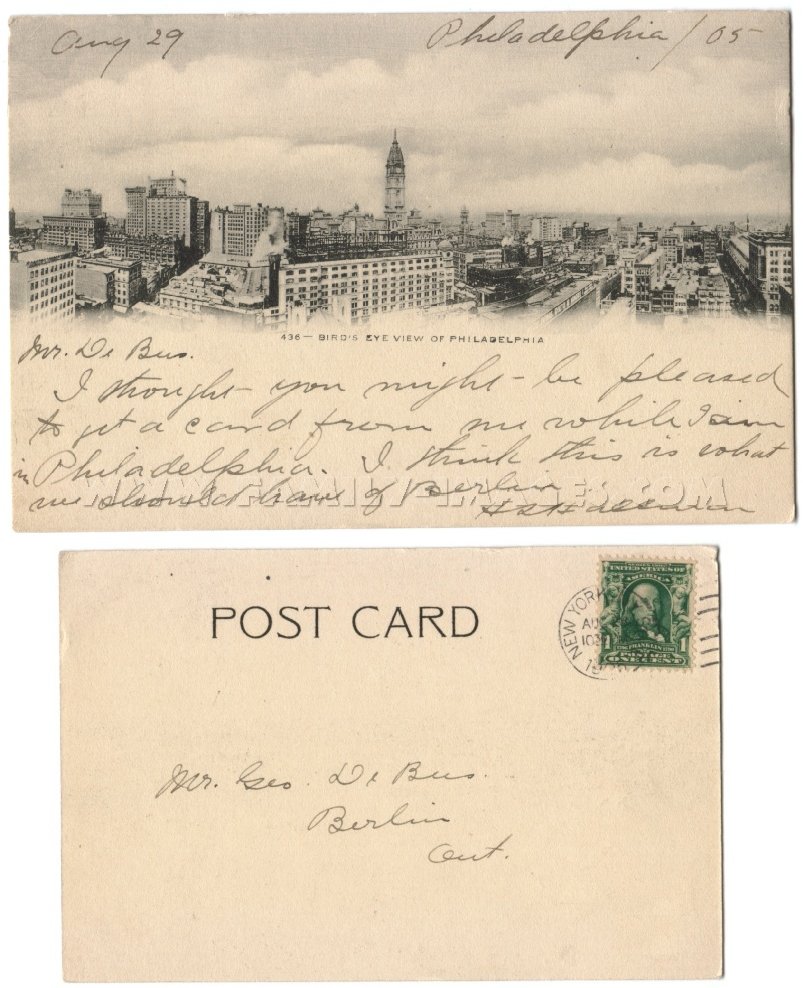 Aug 29 Philadelphia / 05
436 — BIRD'S EYE VIEW OF PHILADELPHIA
Mr. De Bus.
I thought you might be pleased
to get a card from me while I am
in Philadelphia. I think this is what
we should have of Berlin
POST CARD
NEW YORK
UNITED STATES OF
AMERICA
FRANKLIN
POSTAGE
1 ONE CENT 1
Mr. Geo. De Bus.
Berlin
Ont.